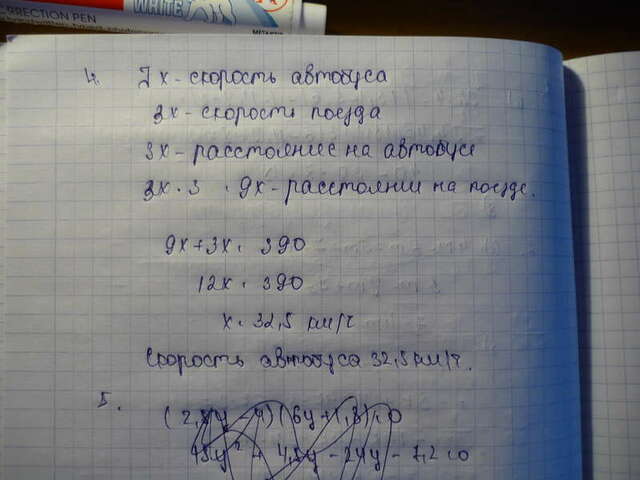 CORRECTION PEN
WHITE
4. Jx - скорость автобуса
3x - скорость поезда
3x - расстояние на автобусе
3x · 3 = 9x - расстояние на поезде.
9x + 3x = 390
12x = 390
x = 32,5 км/ч
Скорость автобуса 32,5 км/ч.
5.
(2,5y - 4)(6y + 1,8) = 0
15y² + 4,5y - 24y - 7,2 = 0